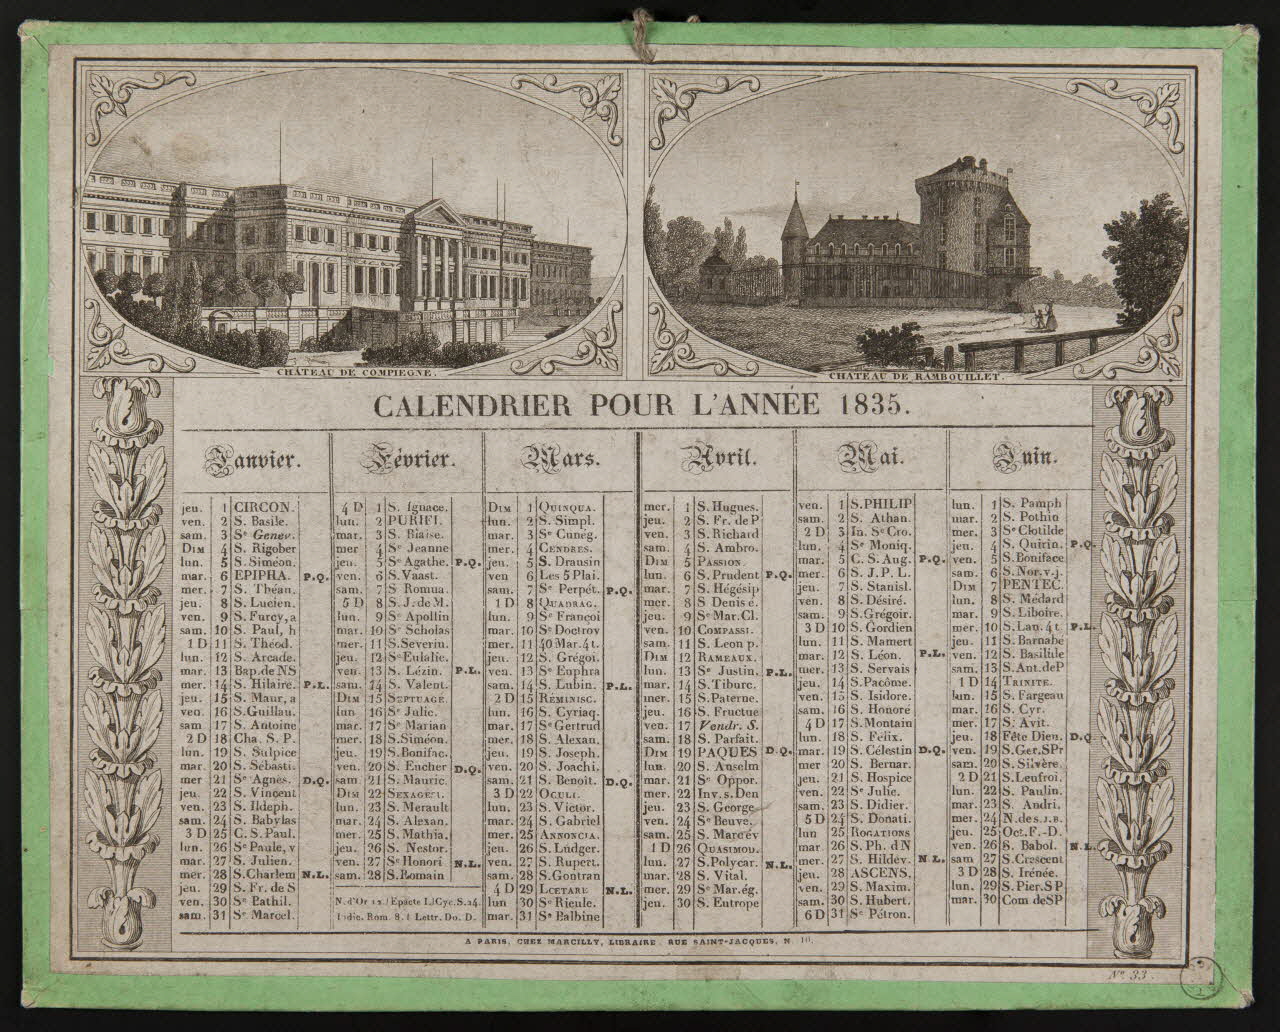 CHÂTEAU DE COMPIEGNE.
CHÂTEAU DE RAMBOUILLET.
CALENDRIER POUR L'ANNÉE 1835.
Janvier.
jeu. 1 CIRCON.
ven. 2 S. Basile.
sam. 3 Se Genev.
DIM 4 S. Rigober
lun. 5 S. Siméon.
mar. 6 EPIPHA. P.Q.
mer. 7 S. Théan.
jeu. 8 S. Lucien.
ven. 9 S. Furcy, a
sam. 10 S. Paul, h
1 D 11 S. Théod.
lun. 12 S. Arcade.
mar. 13 Bap. de NS
mer. 14 S. Hilaire. P.L.
jeu. 15 S. Maur, a
ven. 16 S. Guillau.
sam 17 S. Antoine
2 D 18 Cha. S. P.
lun. 19 S. Sulpice
mar. 20 S. Sébasti.
mer 21 Se Agnès. D.Q.
jeu. 22 S. Vincent
ven. 23 S. Ildeph.
sam. 24 S. Babylas
3 D 25 C. S. Paul.
lun. 26 Se Paule, v
mar. 27 S. Julien.
mer. 28 S. Charlem N.L.
jeu. 29 S. Fr. de S
ven. 30 Se Bathil.
sam. 31 Se Marcel.
Février.
4 D 1 S. Ignace.
lun. 2 PURIFI.
mar. 3 S. Blaise.
mer 4 Se Jeanne
jeu. 5 Se Agathe. P.Q.
ven. 6 S. Vaast.
sam. 7 S Romua.
5 D 8 S. J. de M.
lun. 9 Se Apollin
mar. 10 Se Scholas
mer. 11 S. Severin.
jeu. 12 Se Eulalie.
ven. 13 S. Lézin. P.L.
sam. 14 S. Valent.
DIM 15 SEPTUAGE.
lun 16 Se Julie.
mar. 17 Se Marian
mer. 18 S. Siméon.
jeu. 19 S. Bonifac.
ven. 20 S. Eucher D.Q.
sam. 21 S. Mauric.
DIM 22 SEXAGEI.
lun. 23 S. Merault
mar. 24 S. Alexan.
mer. 25 S. Mathia.
jeu. 26 S. Nestor.
ven. 27 Se Honori N.L.
sam. 28 S. Romain
N. d'Or 12. Epacte I. Cyc. S. 24.
Indic. Rom. 8. Lettr. Do. D.
Mars.
DIM 1 QUINQUA.
lun. 2 S. Simpl.
mar. 3 Se Cunég.
mer. 4 CENDRES.
jeu. 5 S. Drausin
ven 6 Les 5 Plai.
sam. 7 Se Perpét. P.Q.
1 D 8 QUADRAG.
lun. 9 Se Françoi
mar. 10 Se Doctrov
mer. 11 40 Mar. 4t.
jeu. 12 S. Grégoi.
ven. 13 Se Euphra
sam. 14 S. Lubin. P.L.
2 D 15 RÉMINISC.
lun. 16 S. Cyriaq.
mar. 17 Se Gertrud
mer. 18 S. Alexan.
jeu. 19 S. Joseph.
ven. 20 S. Joachi.
sam. 21 S. Benoît. D.Q.
3 D 22 OCULI.
lun. 23 S. Victor.
mar. 24 S. Gabriel
mer. 25 ANNONCIA.
jeu. 26 S. Ludger.
ven. 27 S. Rupert.
sam. 28 S. Gontran
4 D 29 LŒTARE N.L.
lun 30 Se Rieule.
mar. 31 Se Balbine
Avril.
mer. 1 S. Hugues.
jeu. 2 S. Fr. de P
ven. 3 S. Richard
sam. 4 S. Ambro.
DIM 5 PASSION.
lun. 6 S. Prudent P.Q.
mar. 7 S. Hégésip
mer. 8 S Denis é.
jeu. 9 Se Mar. Cl.
ven. 10 COMPASSI.
sam. 11 S. Leon p.
DIM 12 RAMEAUX.
lun. 13 Se Justin P.L.
mar. 14 S. Tiburc.
mer. 15 S. Paterne.
jeu. 16 S. Fructue
ven. 17 Vendr. S.
sam. 18 S. Parfait.
DIM 19 PAQUES D.Q.
lun. 20 S. Anselm
mar. 21 Se Oppor.
mer. 22 Inv. s. Den
jeu. 23 S. George
ven. 24 Se Beuve.
sam. 25 S. Marc év
1 D 26 QUASIMOD.
lun. 27 S. Polycar. N.L.
mar. 28 S. Vital.
mer. 29 Se Mar. ég.
jeu. 30 S. Eutrope
Mai.
ven. 1 S. PHILIP
sam. 2 S. Athan.
2 D 3 In. Se Cro.
lun. 4 Se Moniq.
mar. 5 C. S. Aug. P.Q.
mer. 6 S. J. P. L.
jeu. 7 S. Stanisl.
ven. 8 S. Désiré.
sam. 9 S. Grégoir.
3 D 10 S. Gordien
lun. 11 S. Mamert
mar. 12 S. Léon. P.L.
mer. 13 S. Servais
jeu. 14 S. Pacôme.
ven. 15 S. Isidore.
sam. 16 S. Honoré
4 D 17 S. Montain
lun. 18 S. Félix.
mar. 19 S. Célestin D.Q.
mer 20 S. Bernar.
jeu. 21 S. Hospice
ven. 22 Se Julie.
sam. 23 S. Didier.
5 D 24 S. Donati.
lun 25 ROGATIONS
mar. 26 S. Ph. d N
mer. 27 S. Hildév. N L.
jeu. 28 ASCENS.
ven. 29 S. Maxim.
sam. 30 S. Hubert.
6 D 31 Se Pétron.
Juin.
lun. 1 S. Pamph
mar. 2 S. Pothin
mer. 3 Se Clotilde
jeu. 4 S. Quirin. P.Q.
ven. 5 S. Boniface
sam. 6 S. Nor. v. j.
DIM 7 PENTEC.
lun. 8 S. Médard
mar. 9 S. Liboire.
mer. 10 S. Lan. 4t P.L.
jeu. 11 S. Barnabé
ven. 12 S. Basilide
sam. 13 S. Ant. de P
1 D 14 TRINITE.
lun. 15 S. Fargeau
mar. 16 S. Cyr.
mer. 17 S. Avit.
jeu. 18 Fête Dieu. D.Q
ven. 19 S. Ger. S Pr
sam. 20 S. Silvère.
2 D 21 S. Leufroi.
lun. 22 S. Paulin.
mar. 23 S. Andri.
mer. 24 N. de S. J. B.
jeu. 25 Oct. F.-D.
ven. 26 S. Babol. N.L.
sam 27 S. Crescent
3 D 28 S. Irénée.
lun. 29 S. Pier. S P
mar. 30 Com de SP
A PARIS, CHEZ MARCILLY, LIBRAIRE, RUE SAINT-JACQUES, N. 10.
No. 33.